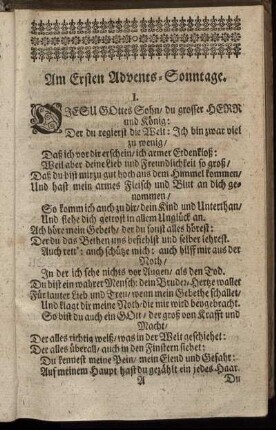 Am Ersten Advents-Sonntage.
I.
JESU GOttes Sohn/ du grosser HERR
und König:
Der du regierst die Welt: Ich bin zwar viel
zu wenig/
Daß ich vor dir erschein/ ich armer Erdenkloß:
Weil aber deine Lieb und Freundlichkeit so groß/
Daß du bist mir zu gut hoch aus dem Himmel kommen/
Und hast mein armes Fleisch und Blut an dich ge-
nommen/
So komm ich auch zu dir/ dein Kind und Unterthan/
Und flehe dich getrost in allem Unglück an.
Ach höre mein Gebeth/ der du sonst alles hörest:
Der du das Bethen uns befiehlst und selber lehrest.
Auch rett': auch schütze mich: auch hilff mir aus der
Noth/
In der ich sehe nichts vor Augen/ als den Tod.
Du bist ein wahrer Mensch: dein Bruder-Hertze wallet
Für lauter Lieb und Treu/ wenn mein Gebethe schallet/
Und klagt dir meine Noth/ die mir wird beygebracht.
So bist du auch ein GOtt/ der groß von Krafft und
Macht/
Der alles richtig weiß/ was in der Welt geschiehet:
Der alles überall/ auch in den Finstern siehet:
Du kennest meine Pein/ mein Elend und Gefahr:
Auf meinem Haupt hast du gezählt ein jedes Haar.
A Du